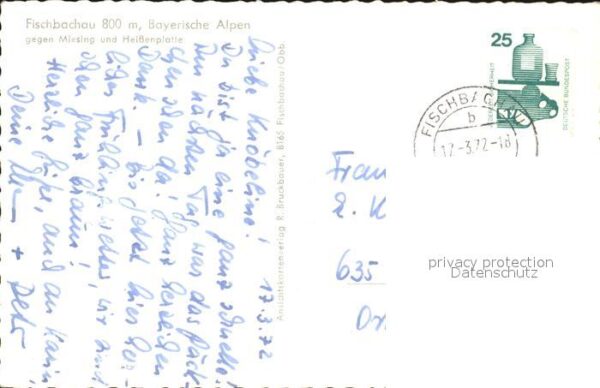 Fischbachau 800 m, Bayerische Alpen
gegen Miesing und Heißenplatte
17.3.72
Liebe Knöbeline!
Du bist ja eine ganz schnelle
Den nächsten Tag war das Päck
chen schon da! Ganz herzlichen
Dank. – Bis jetzt hier herr
liches Frühlingswetter, wir sind
schon ganz braun!
Herzliche Grüße, auch an Karin
Deine
+
Ansichtskartenverlag R. Bruckbauer, 8165 Fischbachau/Obb.
25
DEUTSCHE BUNDESPOST
FISCHBACHAU
b
17.-3.72-18
Frau
E. K
635
privacy protection
Datenschutz